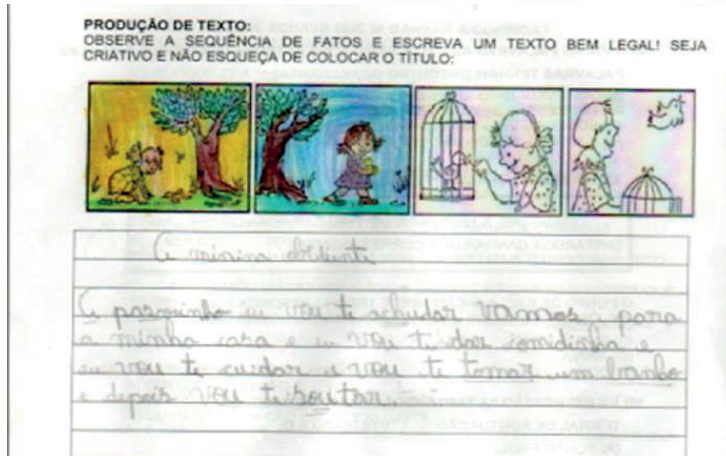 PRODUÇÃO DE TEXTO:
OBSERVE A SEQUÊNCIA DE FATOS E ESCREVA UM TEXTO BEM LEGAL! SEJA
CRIATIVO E NÃO ESQUEÇA DE COLOCAR O TÍTULO:
A minina
A pasquinho eu vou ti achudar vamos para
a minha casa e eu vou ti dar comidinha e
eu vou ti cuidar e vou ti tomar um banho
e depois vou ti soutar.